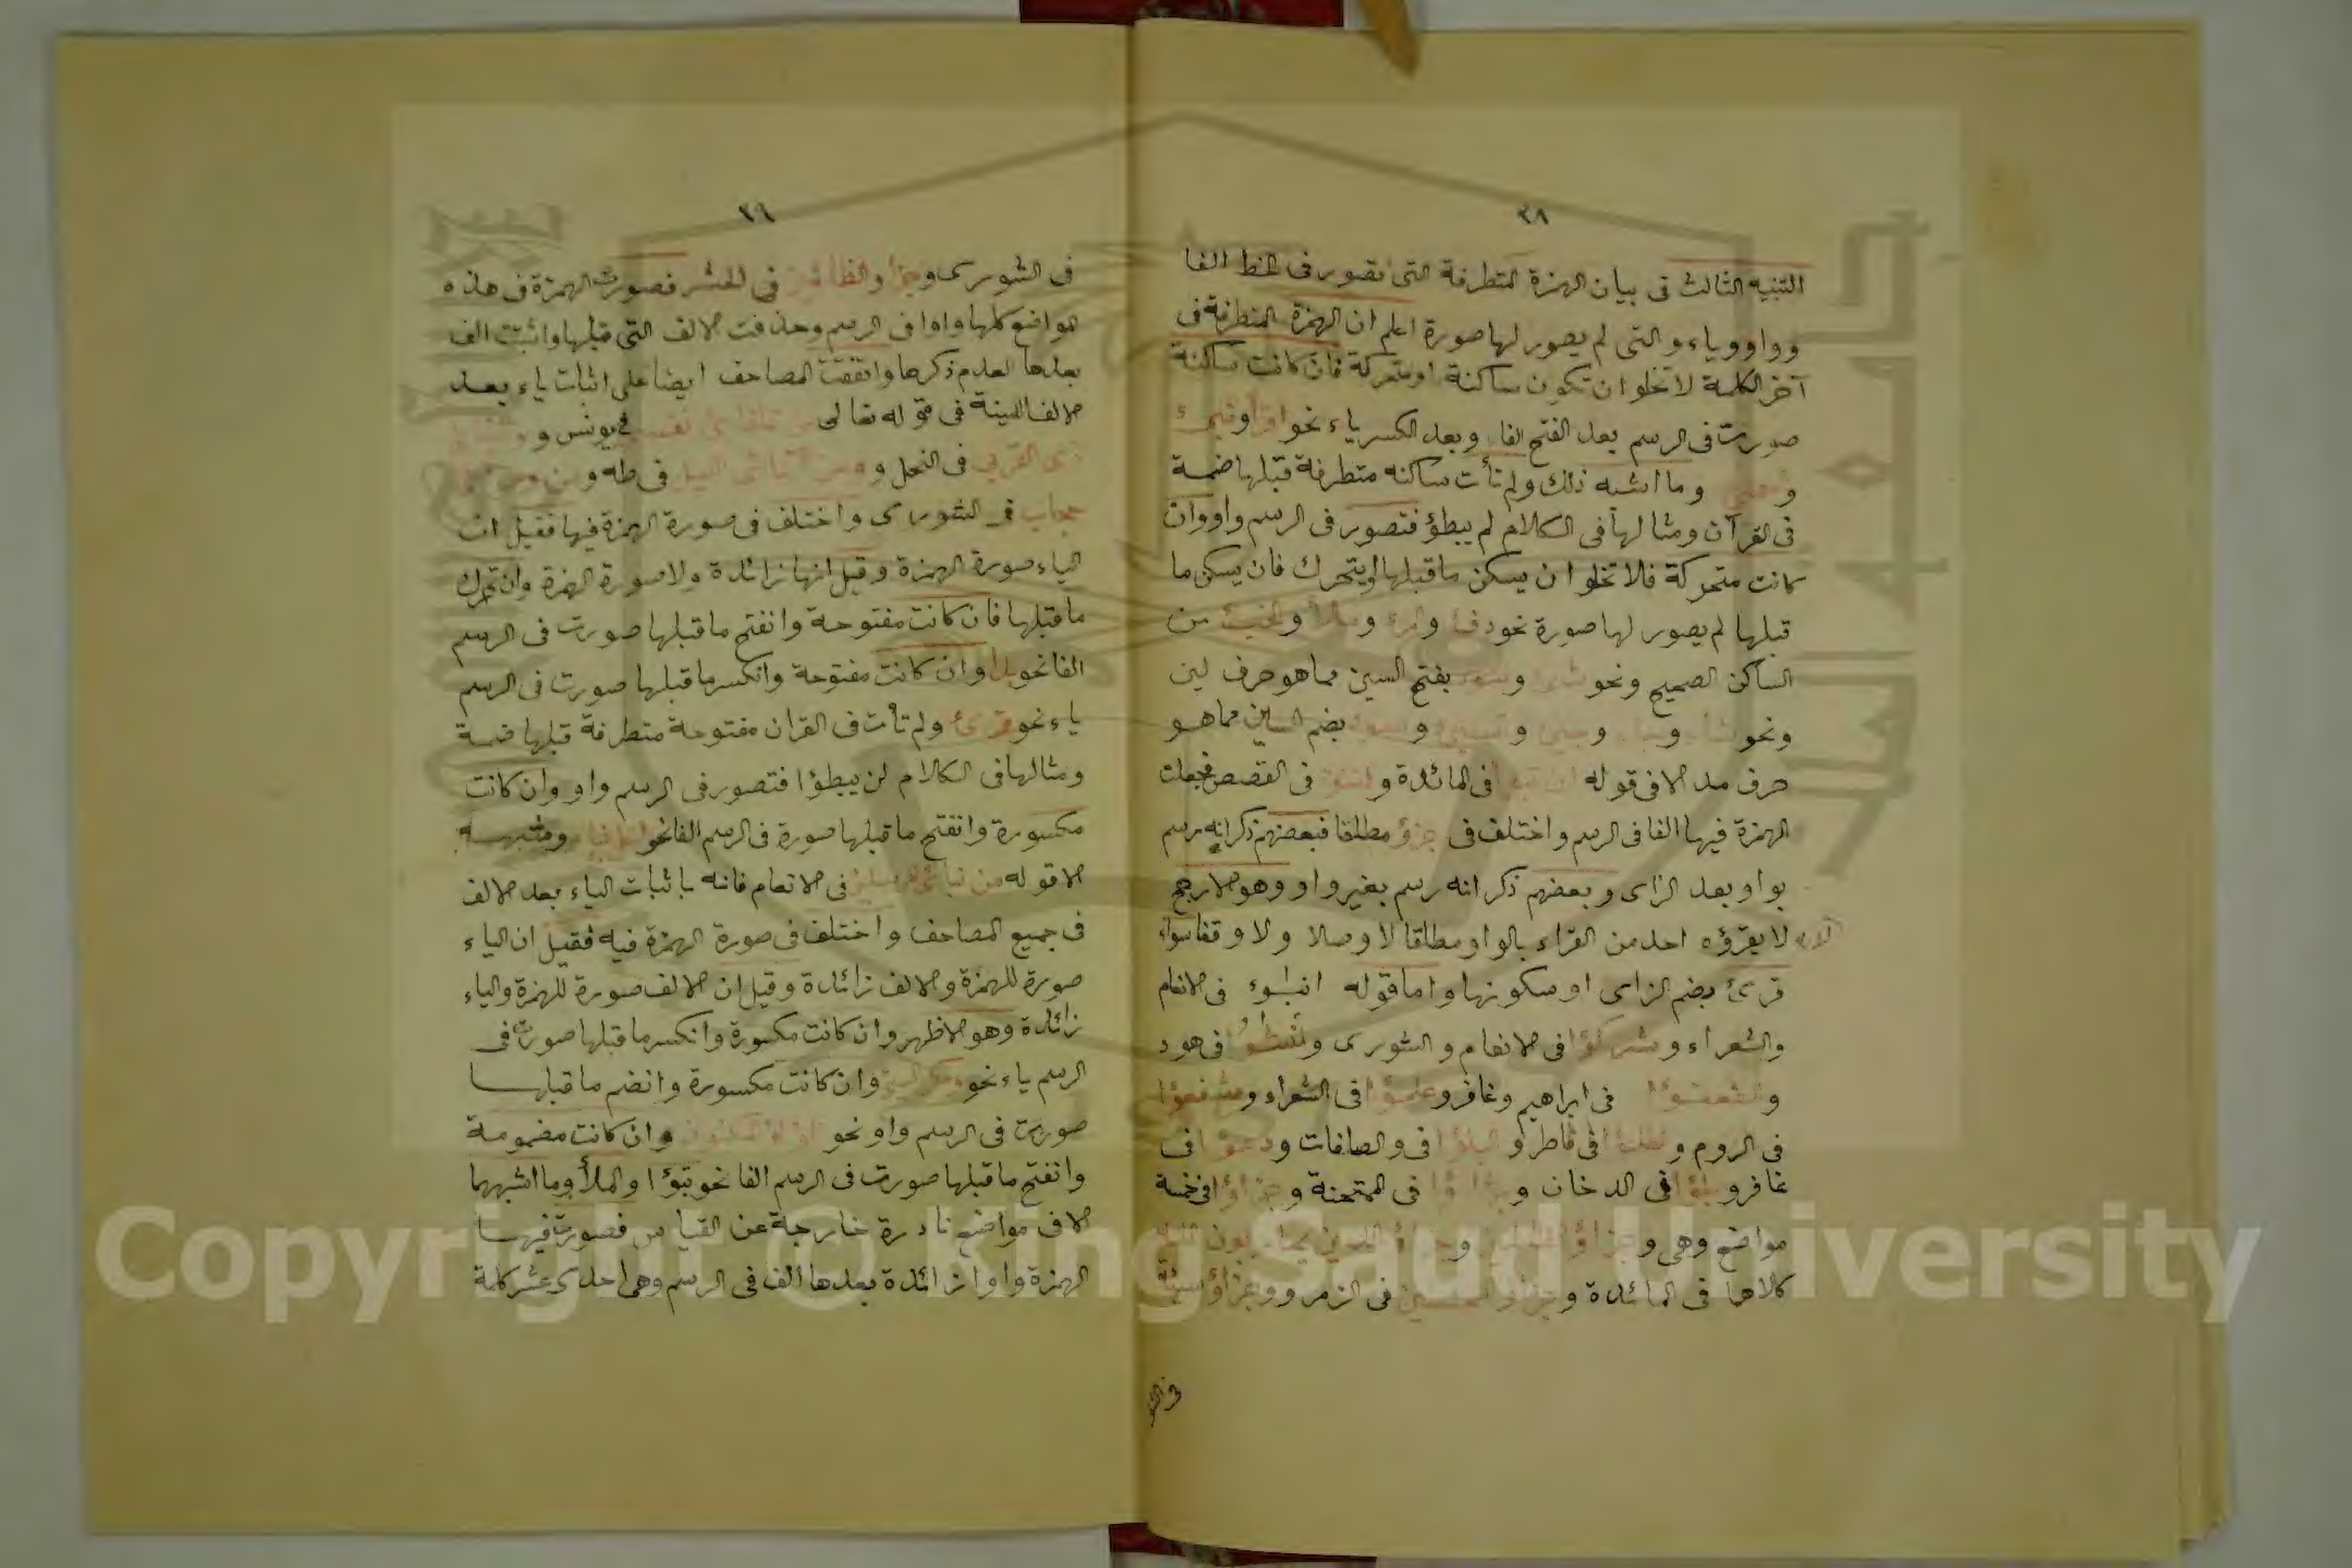 ٣٨
التنبيه الثالث فى بيان الهمزة المتطرفة التى تصور فى الخط الفا
وواو وياء والتى لم يصور لها صورة اعلم ان الهمزة المتطرفة فى
آخر الكلمة لا تخلو ان تكون ساكنة او متحركة فان كانت ساكنة
صورت فى الرسم بعد الفتح الفا وبعد الكسر ياء نحو اقرأ و
و وما اشبه ذلك ولم تأت ساكنه متطرفة قبلها ضمة
فى القرآن ومثالها فى الكلام لم يبطؤ فتصور فى الرسم واو وان
كانت متحركة فلا تخلو ان يسكن ما قبلها او يتحرك فان يسكن ما
قبلها لم يصور لها صورة نحو دفء والمرء و والخبء من
الساكن الصحيح ونحو شئ و بفتح السين مما هو حرف لين
ونحو و و و و بضم السين مما هو
حرف مد الا فى قوله ان تبوأ فى المائدة و فى القصص فجعلت
الهمزة فيها الفا فى الرسم واختلف فى جزؤ مطلقا فبعضهم ذكر انه رسم
بواو بعد الزاى وبعضهم ذكر انه رسم بغير واو وهو الارجح
لا يقرؤه احد من القراء بالواو مطلقا لا وصلا ولا وقفا سواء
قرئ بضم الزاى او سكونها واما قوله انبؤا فى الانعام
والشعراء وشركؤا فى الانعام والشورى ونشؤا فى هود
والضعفؤا فى ابراهيم وغافر وعلمؤا فى الشعراء وشفعؤا
فى الروم و فى فاطر والبلؤا فى والصافات ودعؤا فى
غافر وبلؤا فى الدخان و فى الممتحنة وجزاؤا فى خمسة
مواضع وهى وجزاؤا الظلمين و الذين يحاربون الله
كلاهما فى المائدة وجزاؤا المحسنين فى الزمر ووجزاؤا سيئة
فى الشو
٣٩
فى الشورى وجزاؤا الظالمين فى الحشر فصورت الهمزة فى هذه
المواضع كلها واوا فى الرسم وحذفت الالف التى قبلها واثبتت الف
بعدها لعدم ذكرها واتفقت المصاحف ايضا على اثبات ياء بعد
الالف اللينة فى قوله تعالى من تلقائ نفسى فى يونس و
ذى القربى فى النحل و ومن آنائ الليل فى طه و
حجاب فى الشورى واختلف فى صورة الهمزة فيها فقيل ان
الياء صورة الهمزة وقيل انها زائدة ولا صورة الهمزة وان تحرك
ما قبلها فان كانت مفتوحة وانفتح ما قبلها صورت فى الرسم
الفا نحو بدا وان كانت مفتوحة وانكسر ما قبلها صورت فى الرسم
ياء نحو قرئ ولم تأت فى القران مفتوحة متطرفة قبلها ضمة
ومثالها فى الكلام لن يبطؤا فتصور فى الرسم واو وان كانت
مكسورة وانفتح ما قبلها صورة فى الرسم الفا نحو وشبهه
الا قوله من نبائ المرسلين فى الانعام فانه باثبات الياء بعد الالف
فى جميع المصاحف واختلف فى صورة الهمزة فيه فقيل ان الياء
صورة للهمزة والالف زائدة وقيل ان الالف صورة للهمزة والياء
زائدة وهو الاظهر وان كانت مكسورة وانكسر ما قبلها صورت فى
الرسم ياء نحو وان كانت مكسورة وانضم ما قبلها
صورت فى الرسم واو نحو وان كانت مضمومة
وانفتح ما قبلها صورت فى الرسم الفا نحو تبؤا والملأ وما اشبههما
الا فى مواضع نادرة خارجة عن القياس فصورت فيها
الهمزة واوا زائدة بعدها الف فى الرسم وهى احدى عشر كلمة
Copyright © King Saud University